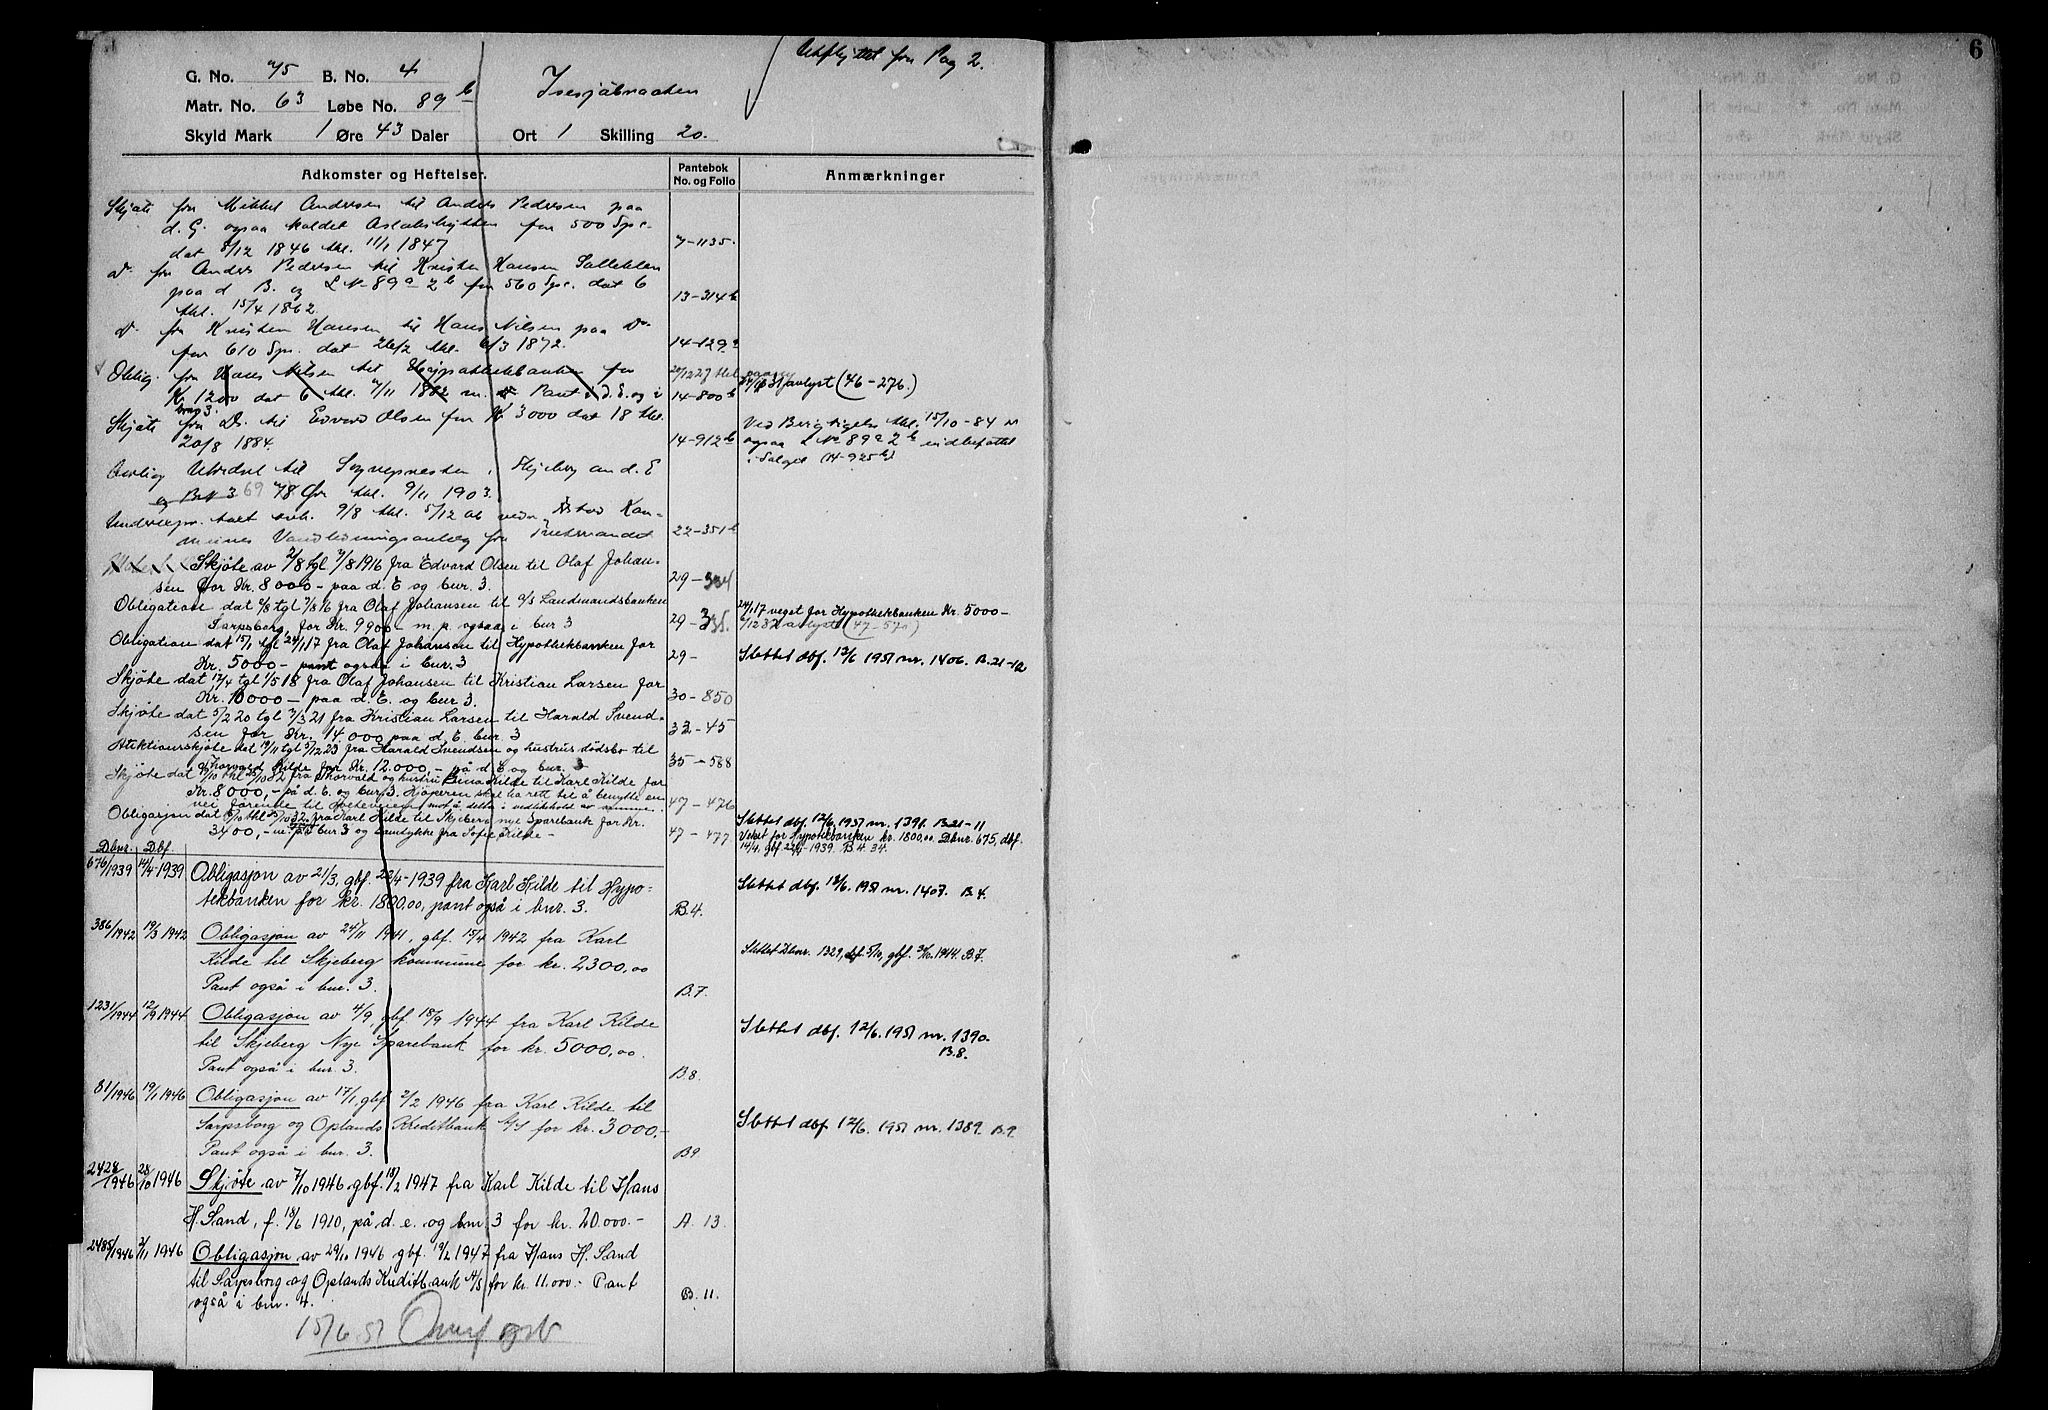 Utflyttet fra Pag 2.
G. No. 75 B. No. 4
Matr. No. 63 Løbe No. 89 b
Skyld Mark 1 Øre 43 Daler Ort 1 Skilling 20.
6
Adkomster og Heftelser. Pantebok No. og Folio Anmærkninger
Skjøte fra Mikkel Andersen til Anders Pedersen paa
d. G. ogsaa kaldet for 500 Spc.
dat 8/12 1846 thl. 11/1 1847 7-1135.
do fra Anders Pedersen til Kristen Hansen
paa d B. og L No 89a 2b for 560 Spc. dat 6
thl. 15/4 1862. 13-314b
do fra Kristen Hansen til Hans Nilsen paa do
for 610 Spc. dat 26/2 thl. 6/3 1872. 14-129a
Oblig. fra Hans Nilsen til Hypothekbanken for
Kr 1200 dat 6 thl. 7/11 1882 m. Pant i d. E. og i
bno 3. 14-800b avlyst (46-276.)
Skjøte fra Ds. til Edvard Olsen for Kr 3000 dat 18 thl.
20/8 1884. 14-912b Ved Berigtigelse thl. 15/10-84 er
ogsaa L No 89a 2b indbefattet
i Salget (14-925b)
Aarlig Utredsel til Sognepresten i Skjeberg av d. E
og BN 3 69 78 Øre thl. 9/11 1903.
Underexpr. takst avh. 9/8 thl. 5/12 06 vedr.
Vandledningsanlæg fra 22-351b
Skjøte av 2/8 tgl 7/8 1916 fra Edvard Olsen til Olaf Johan-
sen for Kr. 8000- paa d. E og bnr. 3. 29-334
Obligation dat 2/8 tgl 7/8 16 fra Olaf Johansen til a/s Landmandsbanken
Sarpsborg for Kr. 9900- m. p. ogsaa i bnr 3 29-335. 24/1 17 veget for Hypothekbanken Kr. 5000-
avlyst (47-570)
Obligation dat 15/1 tgl 24/1 17 fra Olaf Johansen til Hypothekbanken for
Kr. 5000- pant ogsaa i bnr. 3 29- Slettet dbf. 12/6 1951 nr. 1406. B.21-12
Skjøte dat 12/4 tgl 1/5 18 fra Olaf Johansen til Kristian Larsen for
Kr. 10000- paa d. E. og bnr 3. 30-850
Skjøte dat 5/2 20 tgl 7/3 21 fra Kristian Larsen til Harald Svend-
sen for Kr. 14000 paa d. E. bnr. 3 32-45
Auktionsskjøte dat 19/11 tgl 5/12 23 fra Harald Svendsen og hustrus dødsbo til
Thorvald Kilde for Kr. 12.000,- på d. E og bnr. 3 35-588
Skjøte dat 8/10 thl 25/10 32 fra Thorvald og hustru Kilde til Karl Kilde for
Kr. 8000,- på d. E. og bnr 3. Kjøperen skal ha rett til å benytte en
vei førende til mot å delta i vedlikehold av samme. 47-476
Obligasjon dat 8/10 thl 25/10 32 fra Karl Kilde til Skjeberg nye Sparebank for Kr.
3400,- m. p. i bnr 3 og samtykke fra Sofie Kilde- 47-477
Slettet dbf. 12/6 1951 nr. 1391. B21-11
Veket for Hypotekbanken kr. 1800,00. Dbnr. 675, dbf.
14/4, gbf. 22/4-1939. B 4. 34.
Dbnr. Dbf.
676/1939 14/4-1939 Obligasjon av 21/3, gbf. 22/4-1939 fra Karl Kilde til Hypo-
tekbanken for kr. 1800,00, pant også i bnr. 3. B.4. Slettet dbf. 12/6. 1951 nr. 1407. B.4.
386/1942 19/3 1942 Obligasjon av 24/11 1941, gbf. 15/4 1942 fra Karl
Kilde til Skjeberg kommune for kr. 2300,00
Pant også i bnr. 3. B.7. Slettet Dbnr. 1329, dbf. 5/10, gbf. 30/10. 1944. B.7.
1231/1944 12/9 1944 Obligasjon av 4/9, gbf 18/9 1944 fra Karl Kilde
til Skjeberg Nye Sparebank for kr. 5000,00.
Pant også i bnr. 3. B.8. Slettet dbf. 12/6. 1951 nr. 1390.
B.8.
81/1946 19/1 1946 Obligasjon av 17/1, gbf. 2/2 1946 fra Karl Kilde til
Sarpsborg og Oplands Kreditbank A/S for kr. 3000.-
Pant også i bnr. 3. B9 Slettet dbf 12/6. 1951 nr. 1389. B.9.
2428/1946 28/10 1946 Skjøte av 7/10 1946 gbf. 18/2 1947 fra Karl Kilde til Hans
H. Sand, f. 18/6 1910, på d. e. og bnr. 3 for kr. 20.000.- A. 13.
2485/1946 2/11 1946 Obligasjon av 29/10 1946 gbf. 19/2 1947 fra Hans H. Sand
til Sarpsborg og Oplands Kreditbank A/S for kr. 11.000.- Pant
også i bnr. 4. B. 11.
15/6.51 Overf